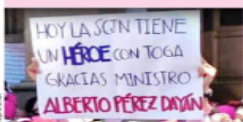 HOY LA SCJN TIENE
UN HÉROE CON TOGA
GRACIAS MINISTRO
ALBERTO PÉREZ DAYÁN